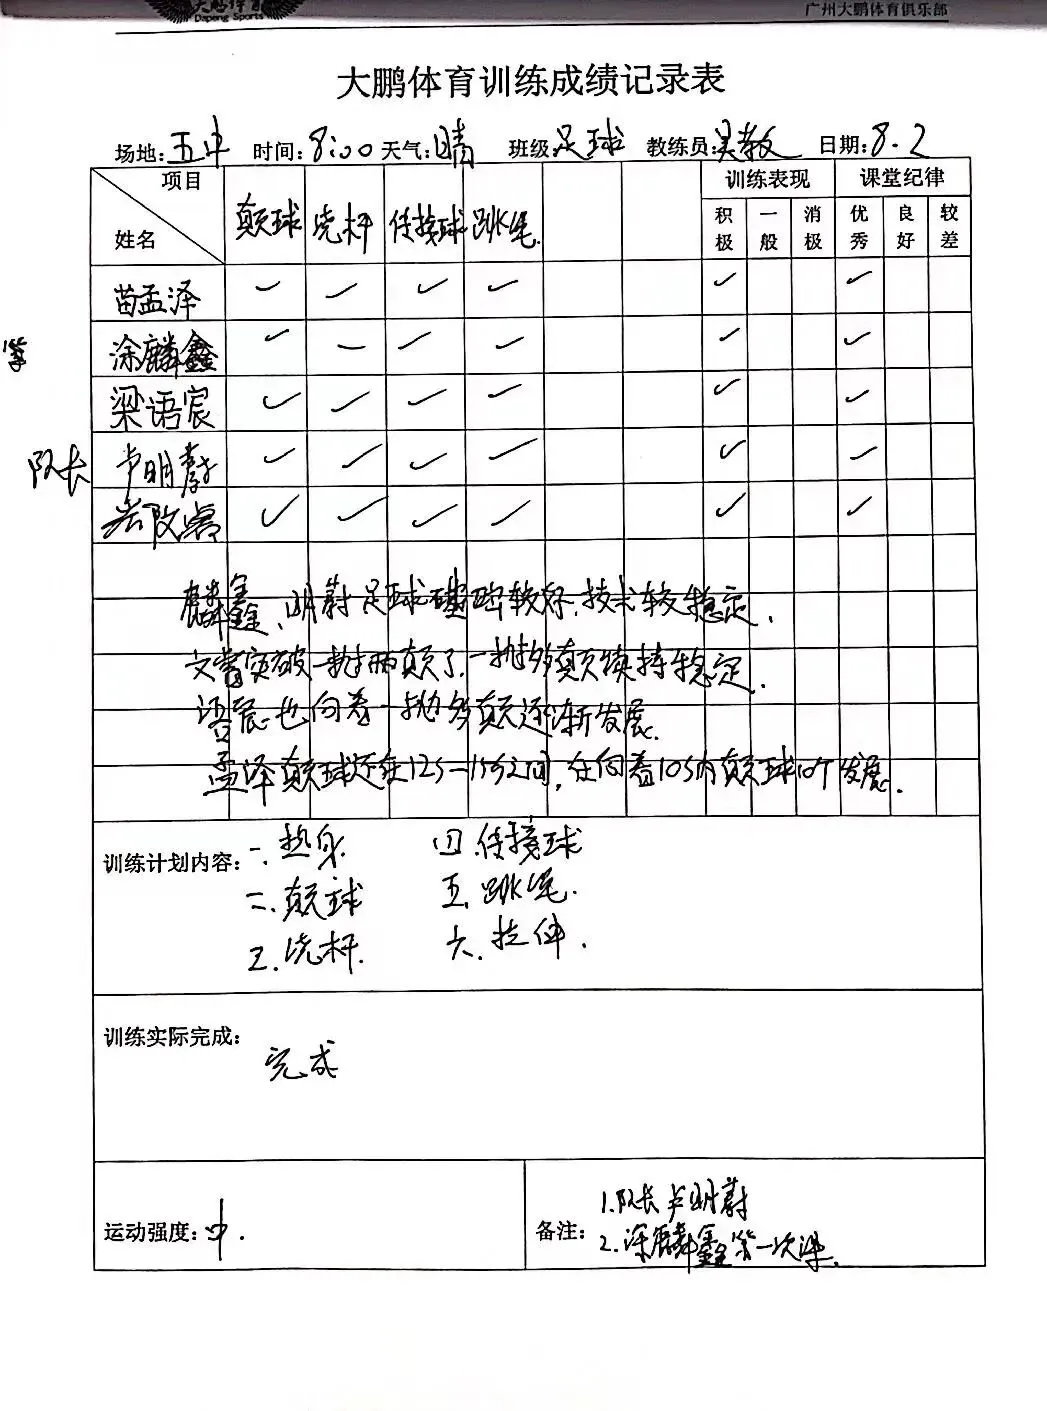 大鹏体育
Dapeng Sports
广州大鹏体育俱乐部
大鹏体育训练成绩记录表
场地:五中 时间:8:00 天气:晴 班级:足球 教练员:吴教 日期:8.2
项目 训练表现 课堂纪律
姓名 颠球 绕杆 传接球 跳绳. 积极 一般 消极 优秀 良好 较差
苗孟泽 ✓ ✓ ✓ ✓ ✓ ✓
涂麟鑫 ✓ – ✓ ✓ ✓ ✓
梁语宸 ✓ ✓ ✓ ✓ ✓ ✓
队长 卢明蔚 ✓ ✓ ✓ ✓ ✓ ✓
✓ ✓ ✓ ✓ ✓ ✓
麟鑫、明蔚足球基础较好,技术较稳定.
突破一抛两颠了,一抛多颠 稳定.
语宸也向着一抛多颠逐渐发展.
孟泽颠球还在12s-15s之间,在向着10s内颠球10个发展.
训练计划内容: 一.热身. 四.传接球
二.颠球 五.跳绳.
三.绕杆. 六.拉伸.
训练实际完成:
完成
运动强度:中.
备注: 1.队长卢明蔚
2.涂麟鑫第一次课.